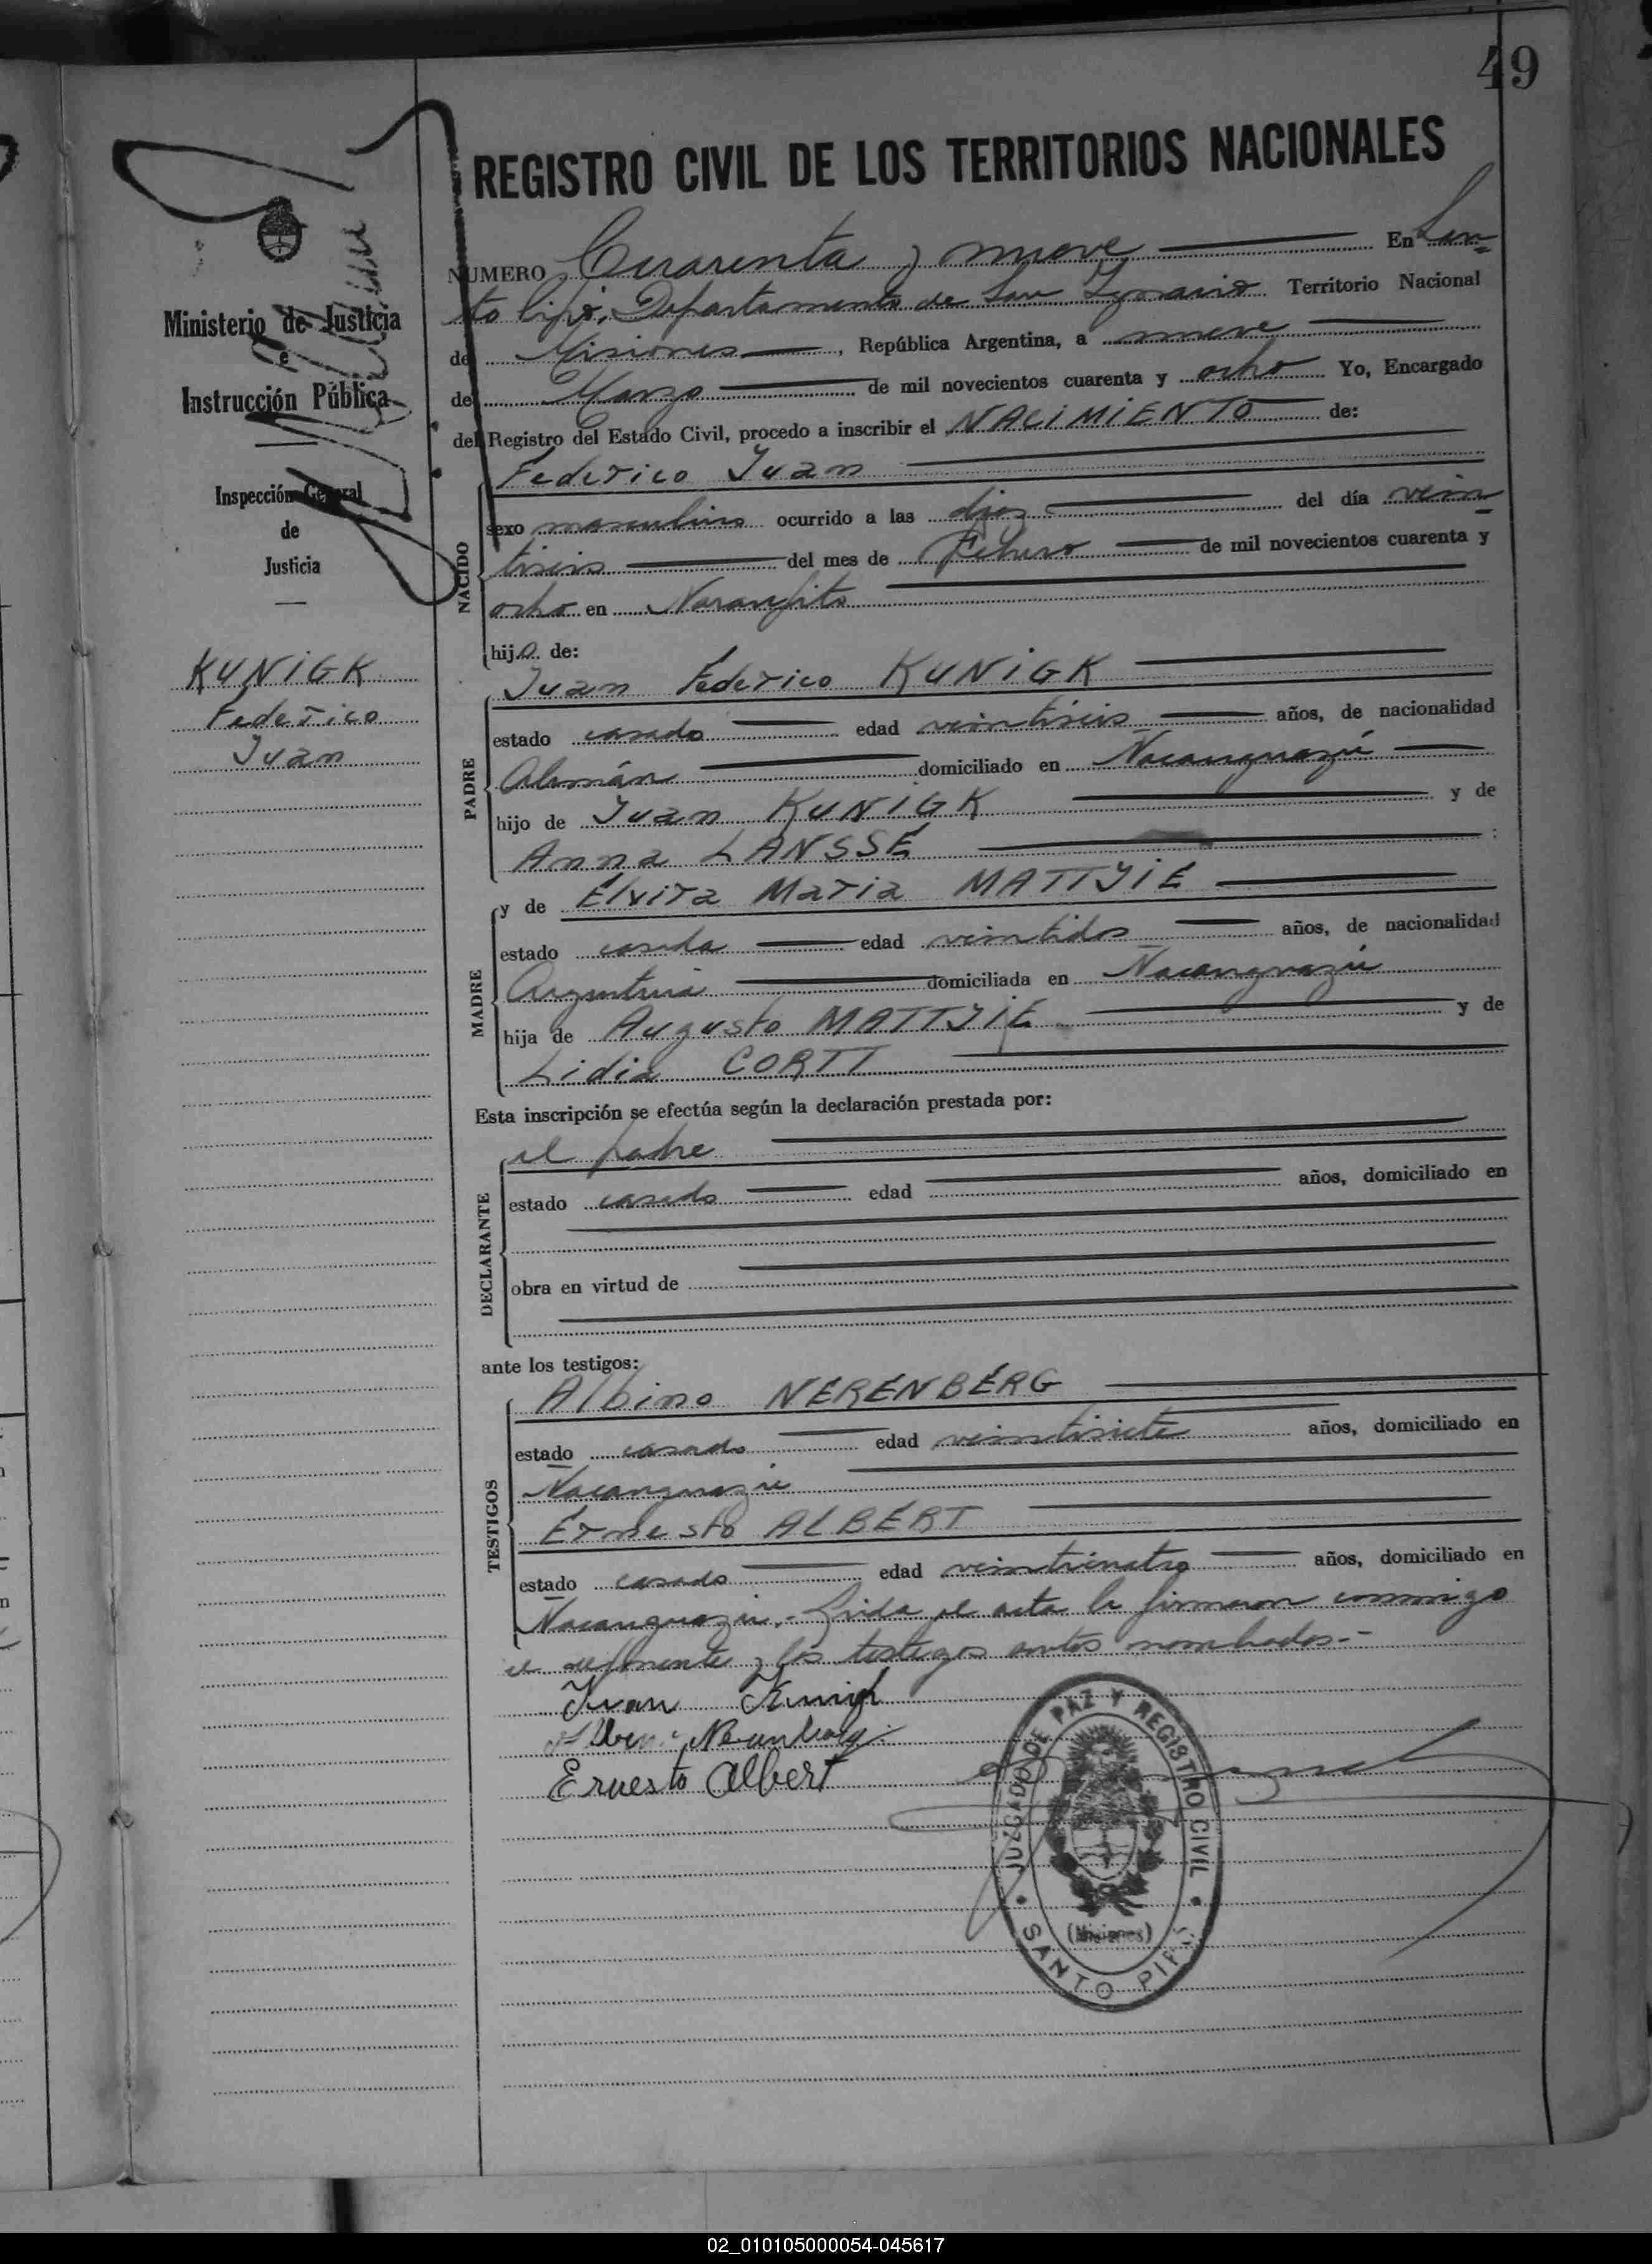 49
REGISTRO CIVIL DE LOS TERRITORIOS NACIONALES
Ministerio de Justicia
e
Instrucción Pública
Inspección General
de
Justicia
KUNIGK
Federico
Juan
NUMERO Cuarenta y nueve En San=
to Pipó, Departamento de San Ignacio Territorio Nacional
de Misiones, República Argentina, a nueve
de Marzo de mil novecientos cuarenta y ocho Yo, Encargado
del Registro del Estado Civil, procedo a inscribir el NACIMIENTO de:
NACIDO
Federico Juan
sexo masculino ocurrido a las diez del día vein=
tiseis del mes de Febrero de mil novecientos cuarenta y
ocho en Naranjito
hijo de:
PADRE
Juan Federico KUNIGK
estado casado edad veintiseis años, de nacionalidad
Alemán domiciliado en Ñacanguazú
hijo de Juan KUNIGK y de
Anna LANSSE :
MADRE
y de Elvira Maria MATTJIE
estado casada edad veintidos años, de nacionalidad
Argentina domiciliada en Ñacanguazú
hija de Augusto MATTJIE y de
Lidia CORTT
Esta inscripción se efectúa según la declaración prestada por:
DECLARANTE
el padre
estado casado edad años, domiciliado en
obra en virtud de
ante los testigos:
TESTIGOS
Albino NERENBERG
estado casado edad veintisiete años, domiciliado en
Ñacanguazú
Ernesto ALBERT
estado casado edad veinticuatro años, domiciliado en
Ñacanguazú.- Leida el acta la firmaron conmigo
el exponente y los testigos antes nombrados.-
Juan Kunigk
Albino Nerenberg
Ernesto Albert
JUZGADO DE PAZ Y REGISTRO CIVIL
(Misiones)
SANTO PIPÓ
02_010105000054-045617